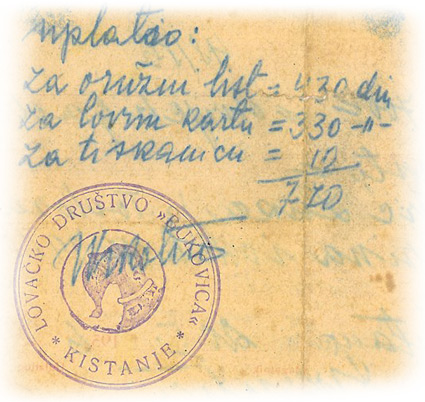 uplatio:
za oružni list = 430 din
za lovnu kartu = 330 -"-
za tiskanicu = 10
770
LOVAČKO DRUŠTVO »BUKOVICA«
* KISTANJE *